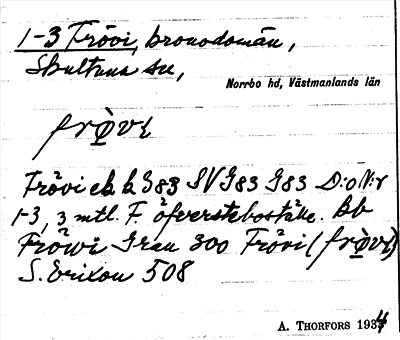 1-3 Frövi, kronodomän,
Skultuna sn,
Norrbo hd, Västmanlands län
Frövi ek k G83 SV G83 J83 D:o N:r
1-3, 3 mtl. F. öfversteboställe. Bb
Fröwi Gran 300 Frövi
S. Erixon 508
A. THORFORS 1934